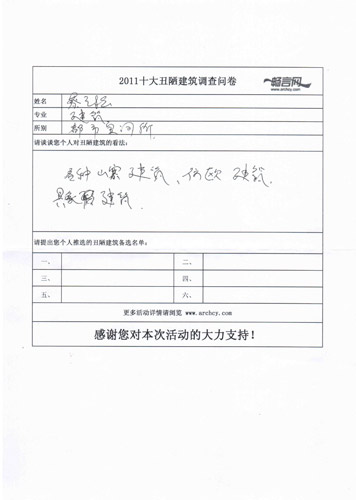 2011十大丑陋建筑调查问卷
畅言网
www.archcy.com
姓名
专业 建筑
所别 都市空间所
请谈谈您个人对丑陋建筑的看法：
各种山寨建筑、仿欧建筑.
建筑.
请提出您个人推选的丑陋建筑备选名单：
一、 二、
三、 四、
五、 六、
更多活动详情请阅览 www.archcy.com
感谢您对本次活动的大力支持！